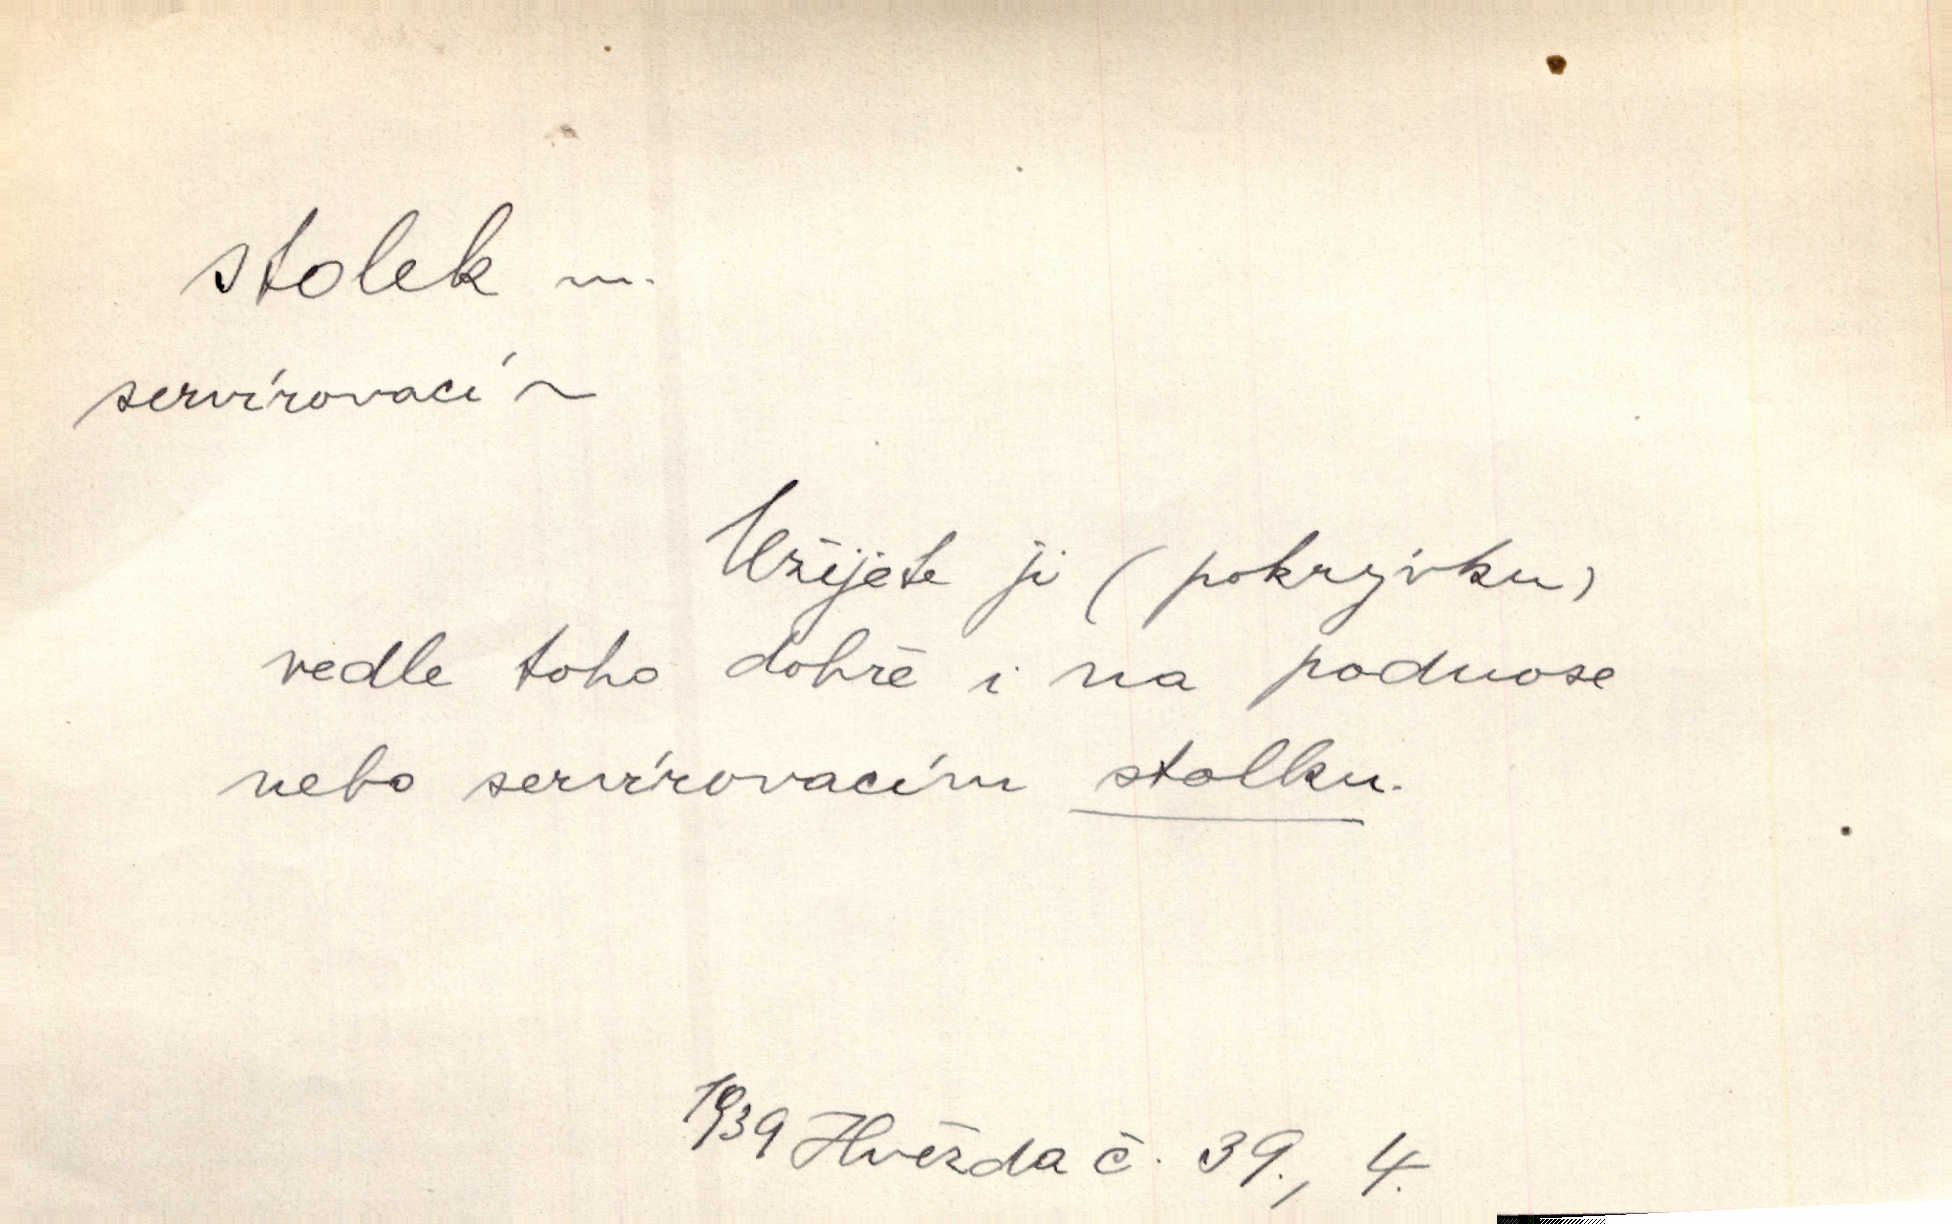 stolek m.
servírovací ~
Užijete ji (pokrývku)
vedle toho dobře i na podnose
nebo servírovacím stolku.
1939 Hvězda č. 39., 4.